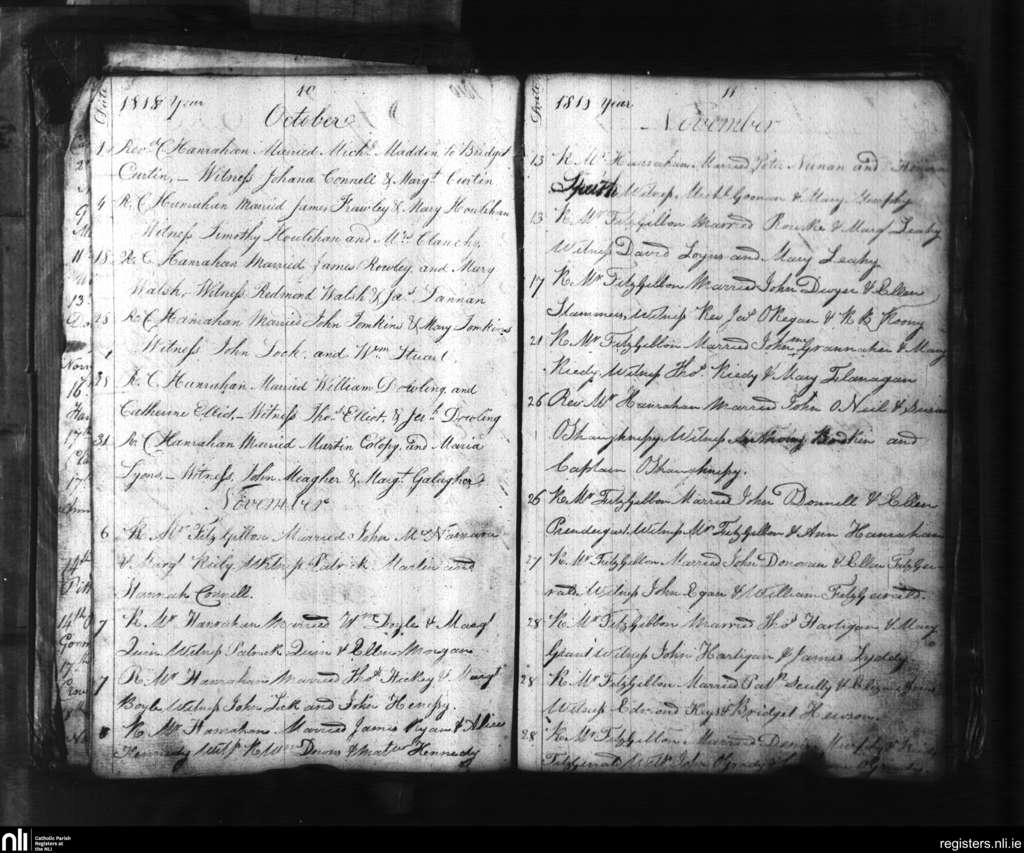 10
1818 Year
October
1 Revd C Hanrahan Married Michl Maddon to Bridget
Curtin, — Witness Johana Connell & Margt Curtin
4 R. C Hanrahan Married James Frawley & Mary Houlihan
Witness Timothy Houlihan and Mrs Clanchy
18 R. C Hanrahan Married James Rowley, and Mary
Walsh, Witness Redmond Walsh & Jas Lannan
25 R. C Hanrahan Married John Tomkins & Mary Tomkins
Witness John Lock, and Wm Stuart
R. C Hanrahan Married William Dowling, and
Catherine Elliot — Witness Thos Elliot, & Dowling
31 R. C Hanrahan Married Martin Colopy, and Maria
Lyons, — Witness, John Meagher & Margt Galagher
November
6 R Mr Fitz Gibbon Married John McNamara
& Margt Kiely Witness Patrick Martin and
Hannah Connell.
7 R Mr Hanrahan Married Wm Doyle & Margt
Quin Witness Patrick Quin & Ellen Morgan
7 R Mr Hanrahan Married Thos Hickey & Margt
Boyle Witness John Lek and John Henesy.
R Mr Hanrahan Married James Ryan & Alice
Kennedy Kennedy
11
1818 Year
November
13 R Mr Hanrahan Married Peter Neenan and
Witness & Mary Murphy
13 R Mr FitzGibbon Married Rourke & Marg Leahy
Witness David Loyns and Mary Leahy
17 R Mr FitzGibbon Married John Dwyer & Ellen
Slammers, Witness Rev Jas ORegan & R B Roony
21 R Mr FitzGibbon Married John & Mary
Kiedy, Witness Thos Kiedy & Mary Flanagan
26 Rev Mr Hanrahan Married John ONeil & Susan
OShaughnessy Witness Anthony Bodkin and
Captain OShaughnessy.
26 R Mr FitzGibbon Married John ODonnell & Ellen
Prendergast Witness Mr FitzGibbon & Ann Hanrahan
27 R Mr FitzGibbon Married John Donovan & Ellen FitzGe-
rald Witness John Egan & William FitzGerald.
28 R Mr FitzGibbon Married Thos Hartigan & Mary
Grant Witness John Hartigan & James Lyddy
28 R Mr FitzGibbon Married Patk Scully &
Witness Edmond Keys & Bridget Hewson
28 R Mr FitzGibbon Married
FitzGerald John OGrady
nli
Catholic Parish
Registers at
the NLI
registers.nli.ie